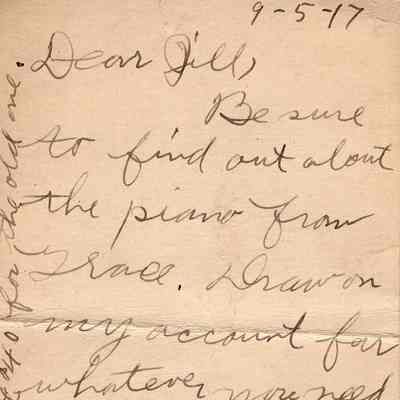 9-5-17
Dear Jill,
Be sure
to find out about
the piano from
Grace. Draw on
my account for
whatever you need
$240 for the old one.